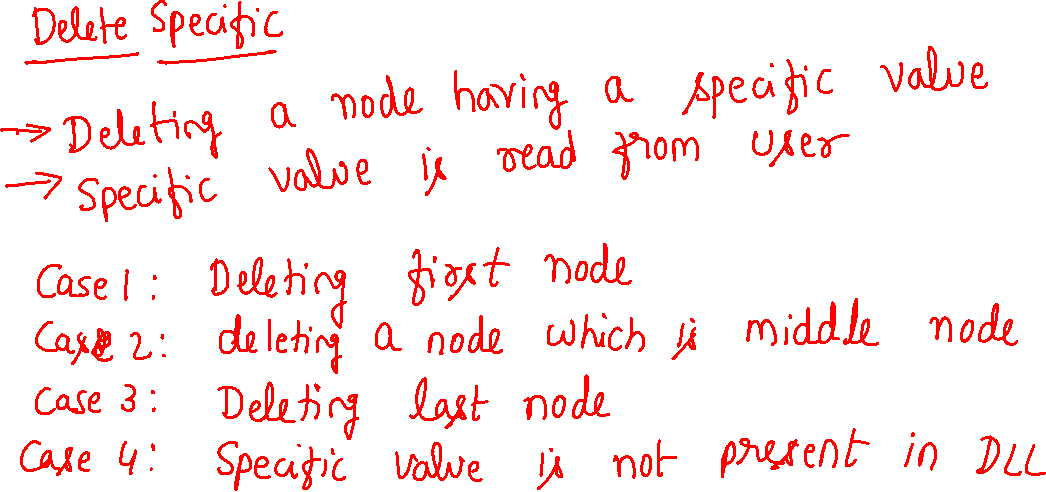 Delete Specific
→ Deleting a node having a specific value
→ Specific value is read from user
Case 1: Deleting first node
Case 2: deleting a node which is middle node
Case 3: Deleting last node
Case 4: Specific value is not present in DLL